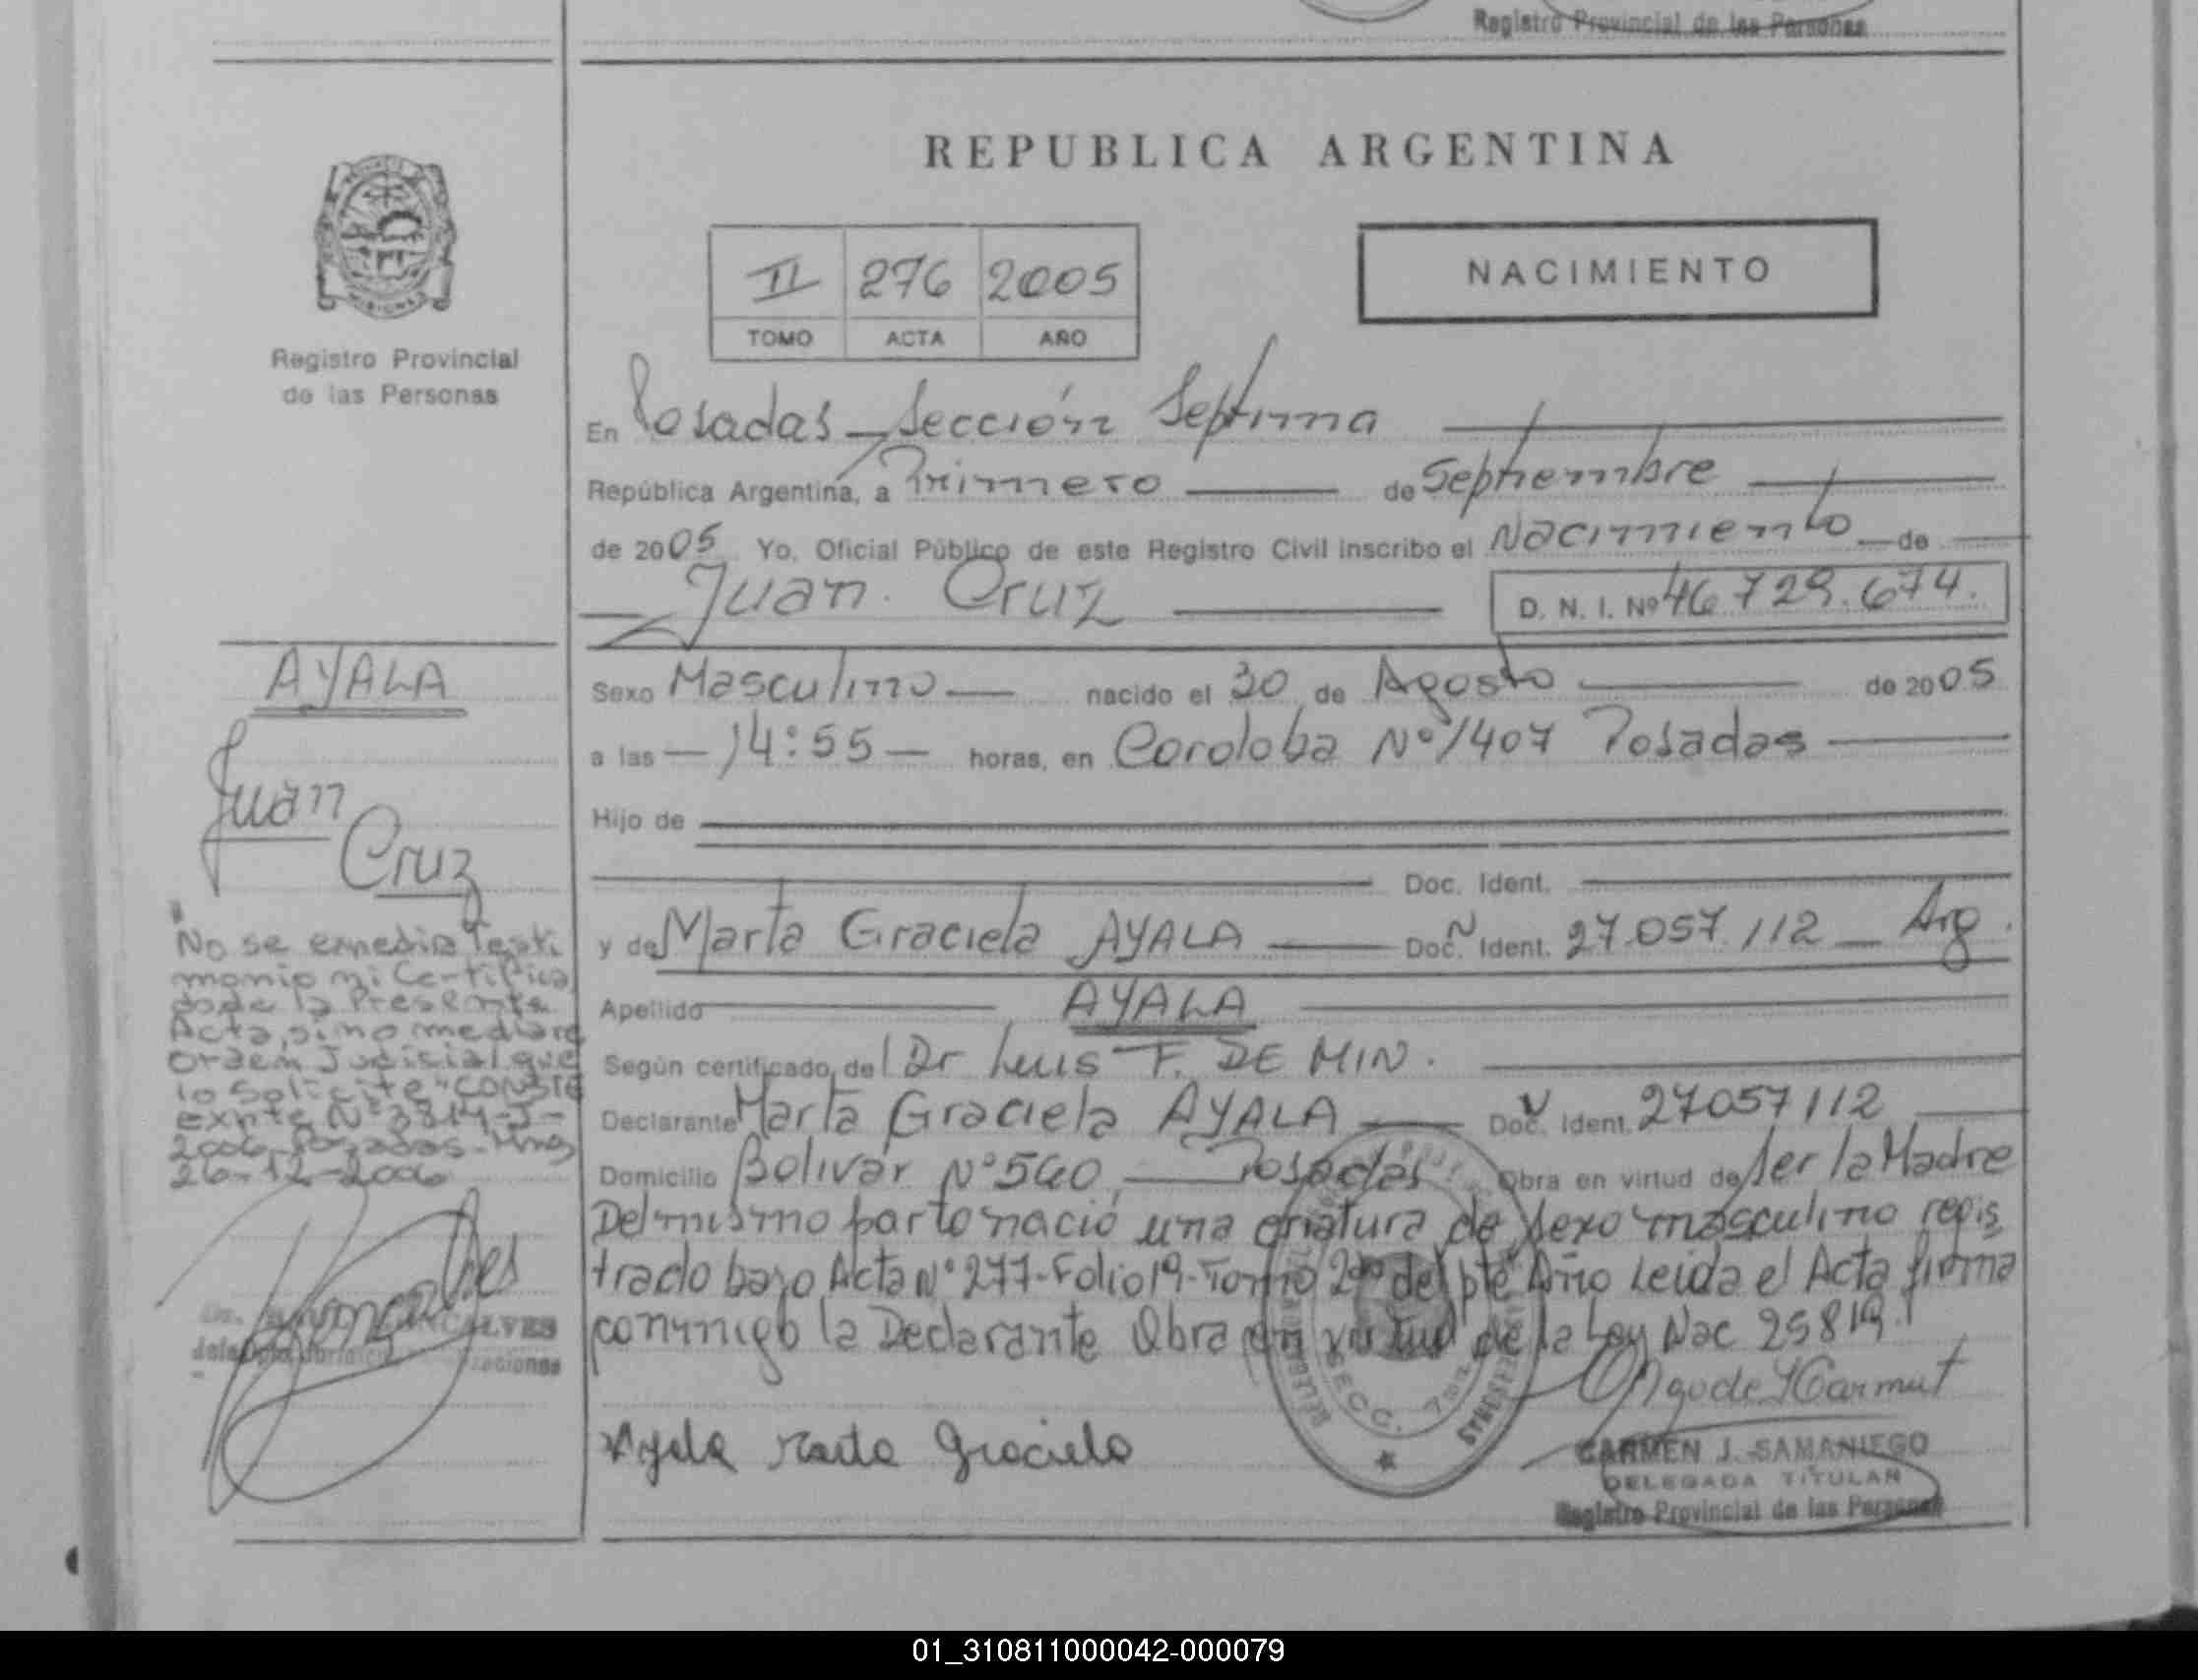 Registro Provincial de las Personas
REPUBLICA ARGENTINA
II 276 2005
TOMO ACTA AÑO
NACIMIENTO
Registro Provincial
de las Personas
En Posadas - Sección Septima
República Argentina, a Primero de Septiembre
de 2005 Yo, Oficial Público de este Registro Civil inscribo el Nacimiento de
Juan Cruz D. N. I. Nº 46.729.674.
Sexo Masculino nacido el 30 de Agosto de 2005
a las 14:55 horas, en Cordoba Nº 1407 Posadas
Hijo de
Doc. Ident.
y de Marta Graciela AYALA Doc. Ident. 27.057.112 Arg.
Apellido AYALA
Según certificado del Dr Luis F. DE MIN.
Declarante Marta Graciela AYALA Doc. Ident. 27057112
Domicilio Bolivar Nº 560, Posadas Obra en virtud de Ser la Madre
Del mismo parto nació una criatura de sexo masculino regis
trado bajo Acta Nº 277-Folio 19-Tomo 2do del pte Año Leida el Acta firma
conmigo la Declarante Obra en virtud de la Ley Nac 25819.
Ayala Marta Graciela
SECC. 7ma
CARMEN J. SAMANIEGO
DELEGADA TITULAR
Registro Provincial de las Personas
AYALA
Juan
Cruz
"No se expedira Testi
monio ni Certifica
do de la Presente
Acta, sino mediare
Orden Judicial que
lo solicite" CONSTE
expte Nº 3814-J-
2006-Posadas-Mnes
26-12-2006
01_310811000042-000079